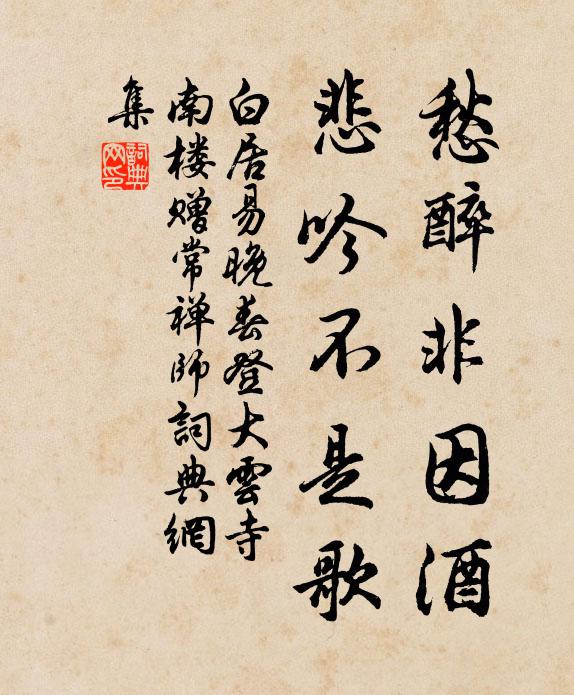 愁醉非因酒
悲吟不是歌
白居易晚春登大雲寺
南楼赠常禅师詞典網
集
詞典
网印